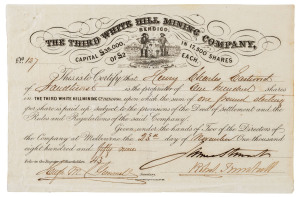 THE THIRD WHITE HILL MINING COMPANY,
BENDIGO.
CAPITAL £25,000, IN 12,500 SHARES
OF £2 EACH.
No. 107
This is to Certify that Henry Charles
of Sandhurst is the proprietor of One Hundred shares
IN THE THIRD WHITE HILL MINING COMPANY, BENDIGO, upon which the sum of one pound sterling
per share is paid up. Subject to the provisions of the Deed of Settlement and the
Rules and Regulations of the said Company.
Given under the hands of Two of the Directors of
the Company at Melbourne the 23rd day of One thousand
eight hundred and fifty nine